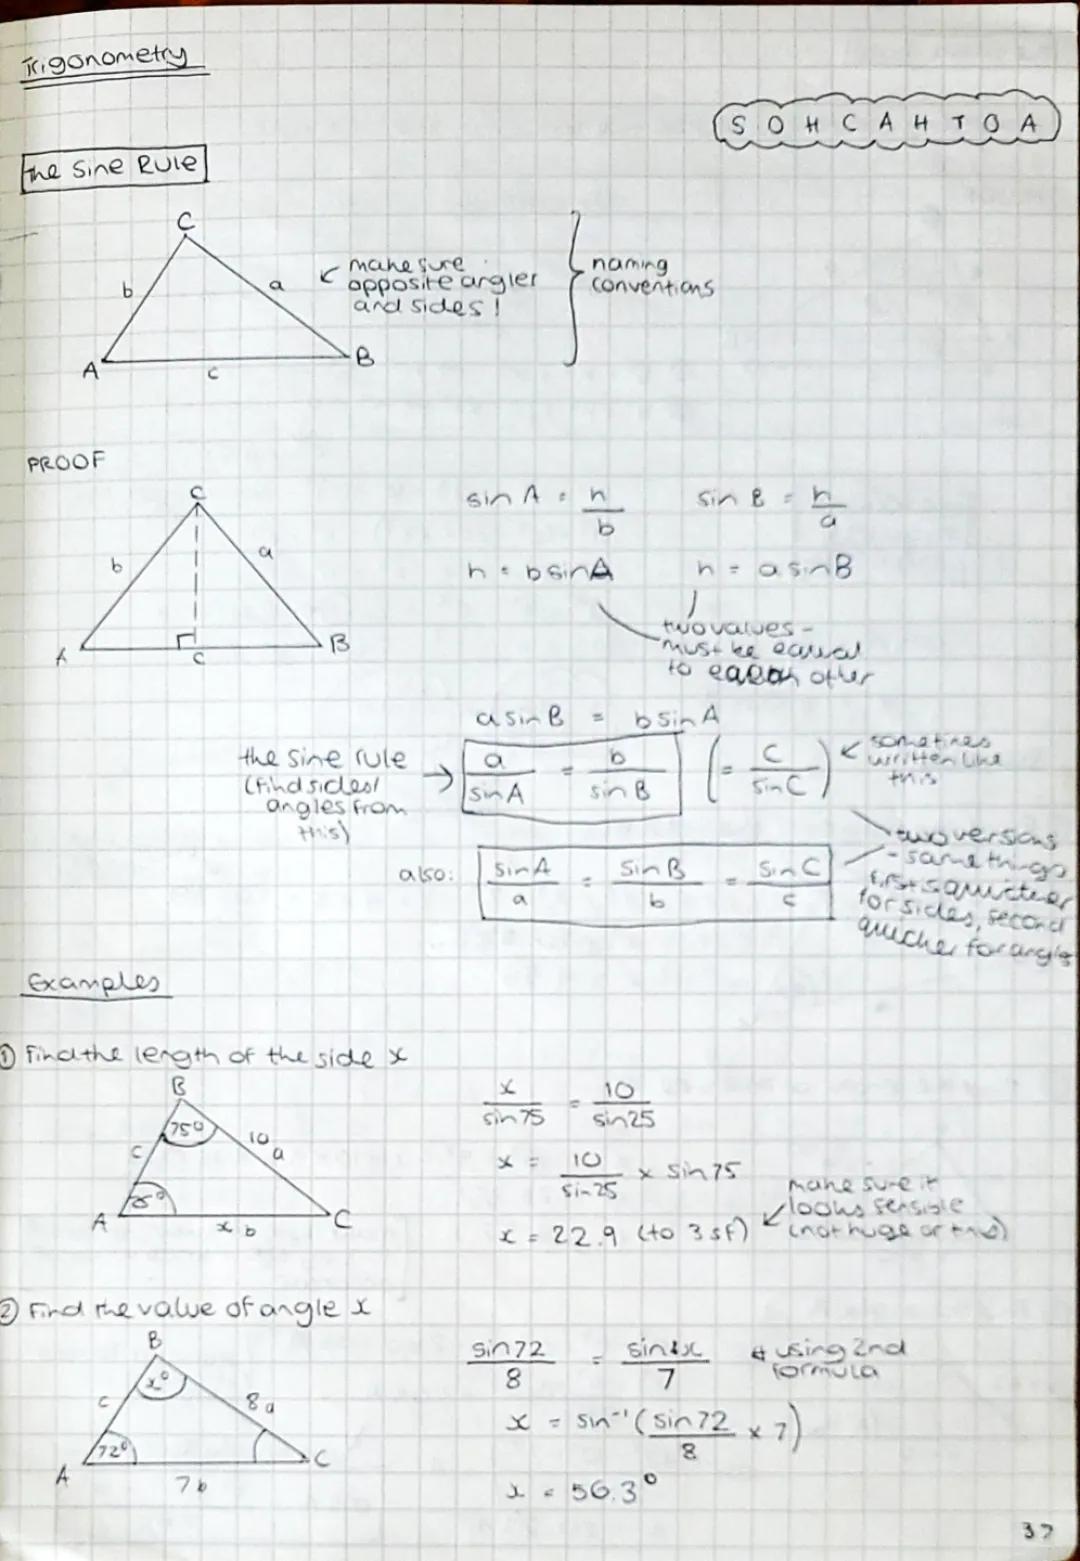 Trigonometry
SOHCAHTOA
The Sine Rule
C
b
a
A
c
B
make sure
opposite angles
and sides!
naming
conventions
PROOF
C
b
a
A
c
B
sin A = h/b
sin B = h/a
h = b sin A
h = a sin B
two values -
must be equal
to each other
a sin B = b sin A
the sine rule
(find sides/
angles from
this)
a/sin A = b/sin B (= c/sin C)
sometimes
written like
this
also:
sin A/a = sin B/b = sin C/c
two versions
- same things
first is quicker
for sides, second
quicker for angles
Examples
① Find the length of the side x
B
75°
10
a
c
A
x b
C
x/sin 75 = 10/sin 25
x = 10/sin 25 × sin 75
x = 22.9 (to 3 sf)
make sure it
looks sensible
(not huge or tiny)
② Find the value of angle x
B
x°
c
8 a
72°
A
7 b
C
sin 72/8 = sin x/7
using 2nd
formula
x = sin⁻¹(sin 72/8 × 7)
x = 56.3°
37